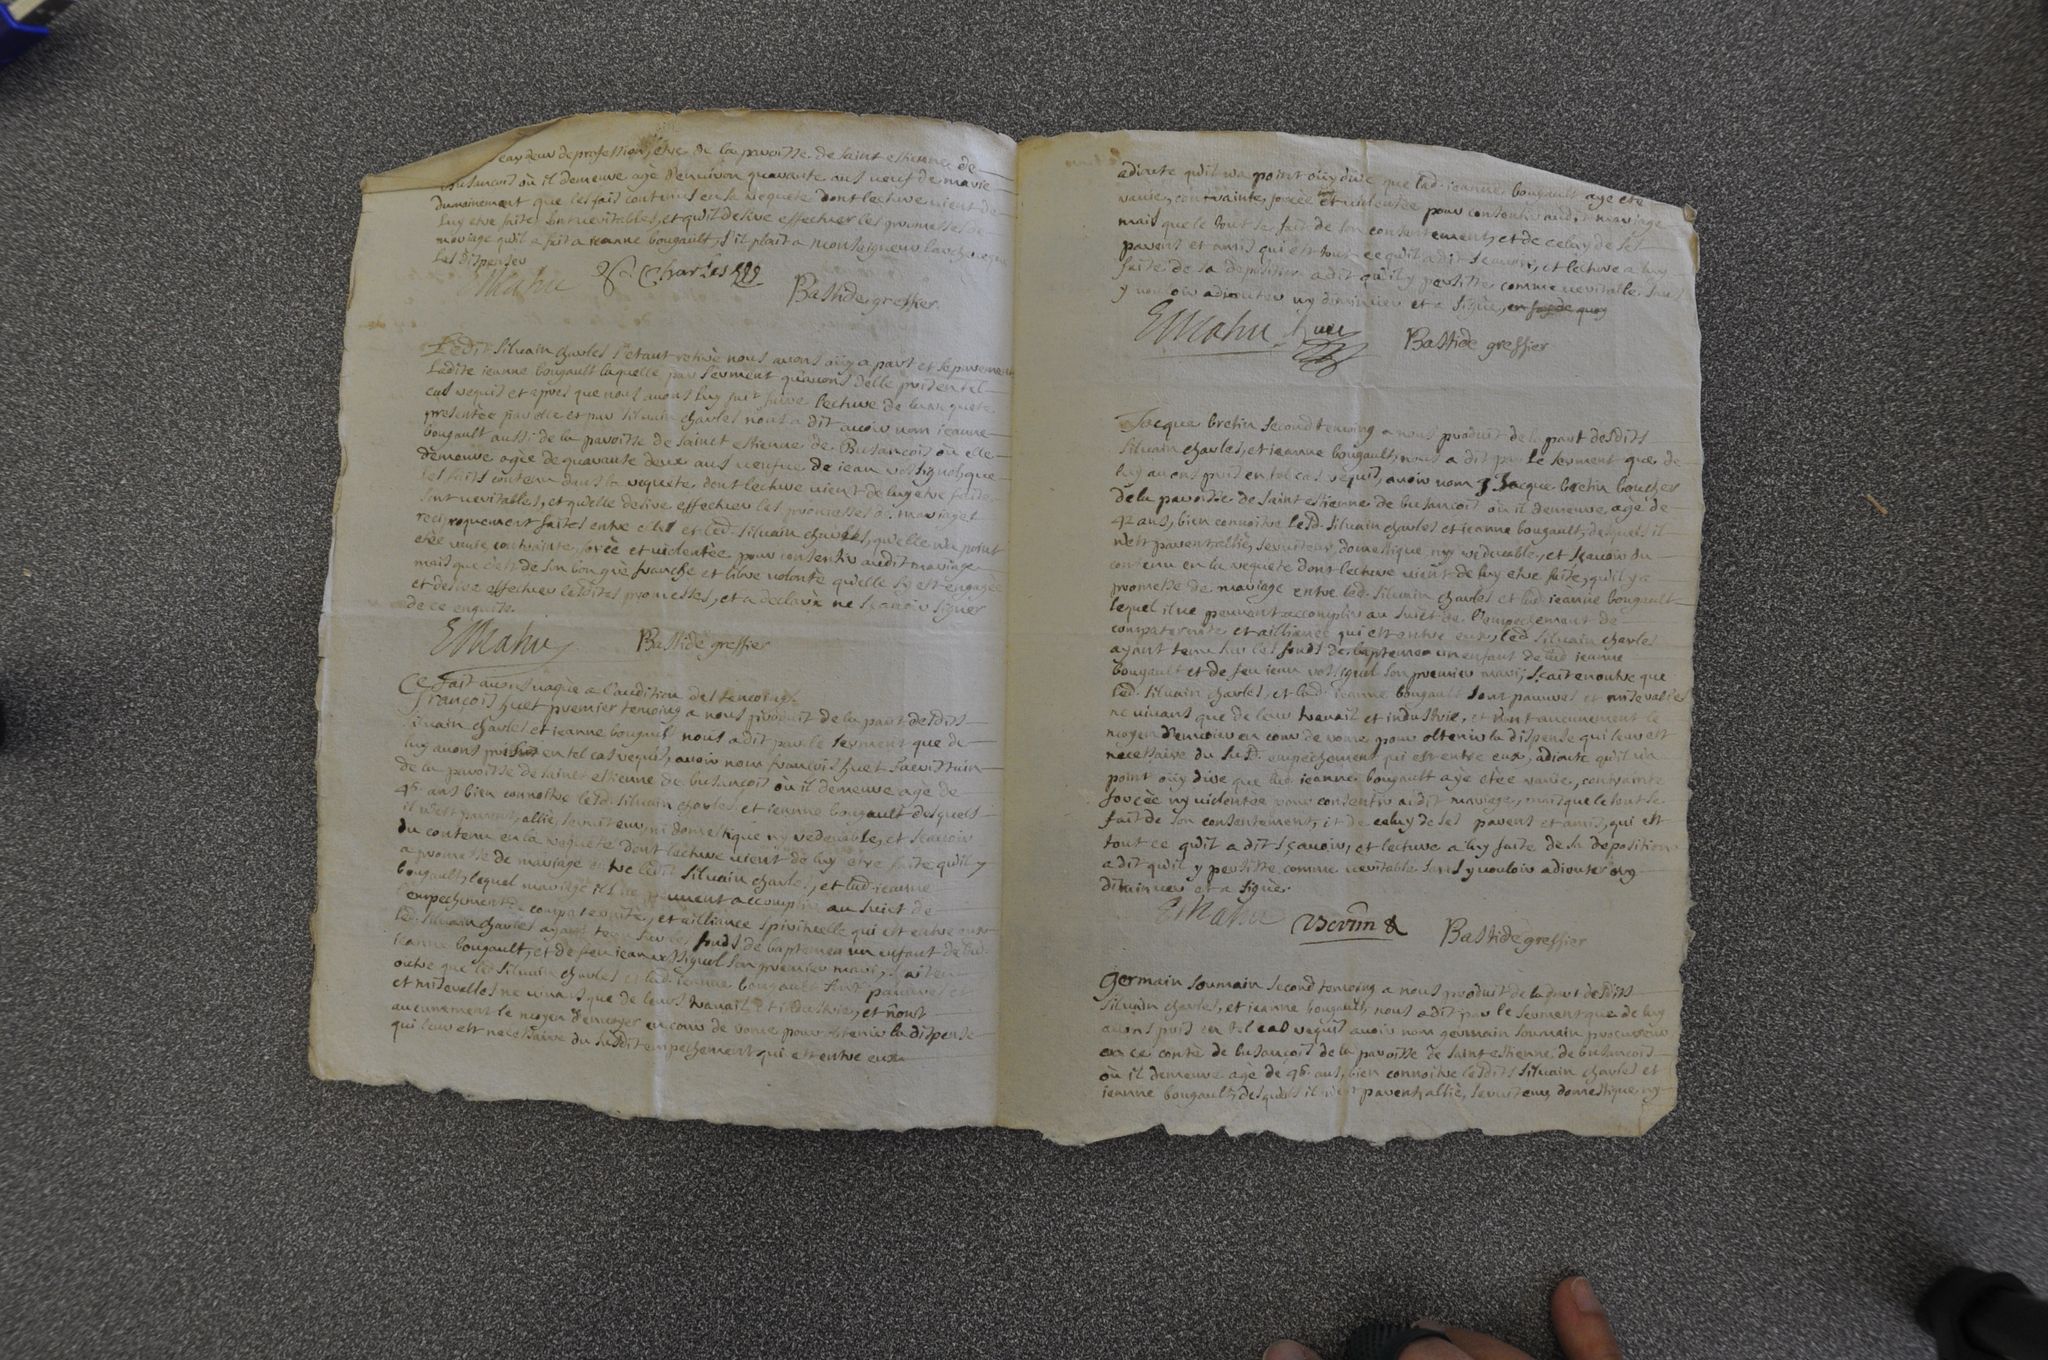 cardeur de profession, etre de la paroisse de saint estienne de
busancois où il demeure agé d'environ quarante ans veuf de marie
dumainement que les fait contenus en sa requete dont lecture vient de
luy etre faite sont veritables, et qu'il desire effectuer les promesses de
mariage qu'il a fait a ieanne bougault, s'il plait a monseigneur larcheveque
les dispenser
EMahu S Charles Bastide greffier.
Ledit silvain charles s'etant retiré nous avons oüy a part et separement
Ladite ieanne bougault laquelle par serment qu'avons d'elle pris en tel
cas requis et apres que nous avons luy fait faire lecture de la requete
presentée par elle et par silvain charles nous a dit avoir nom ieanne
bougault aussi de la paroisse de sainct estienne de Busancois où elle
demeure agée de quarante deux ans veufue de iean rossignol, que
les faits contenu dans la requete dont lecture vient de luy etre faite
sont veritables, et qu'elle desire effectuer les promesses de mariage
reciproquement faites entre elle et led. silvain charles, qu'elle n'a point
etée ravie, contrainte, forcée et violentée pour consentir audit mariage
mais que c'est de son bon gré franche et libre volonté qu'elle s'y est engagée
et desire effectuer lesdites promesses, et a declaré ne sçavoir signer
de ce enquise.
EMahu Bastide greffier
Ce fait avons vaqué a l'audition des temoings.
françois huet premier temoing a nous produit de la part desdits
silvain charles et ieanne bougault nous a dit par le serment que de
luy avons pris en tel cas requis, avoir nom françois huet sacristain
de la paroisse de sainct estienne de busancois où il demeure agé de
45 ans bien connoitre lesd. silvain charles et ieanne bougault desquels
il n'est parent, allié, serviteur, ni domestique ny redevable, et sçavoir
du contenu en la requete dont lecture vient de luy etre faite qu'il y
a promesse de mariage entre ledit silvain charles, et lad. ieanne
bougault, lequel mariage ils ne peuvent accomplir au sujet de
l'empechement de compaternité, et alliance spirituelle qui est entre eux
led. silvain charles ayant tenu sur les fonds de baptemes un enfant de lad.
ieanne bougault, et de feu iean rossignol son premier mari, sçait en
outre que led. silvain charles et lad. ieanne bougault sont pauvres et
et miserables ne vivans que de leurs travail et industrie, et n'ont
aucunement le moyen d'envoyer en cour de rome pour obtenir la dispense
qui leur est necessaire du susdit empechement qui est entre eux
adioute qu'il n'a point oüy dire que lad. ieanne bougault aye eté
ravie, contrainte, forcée et violentée pour consentir audit mariage
mais que le tout se fait de son consentement, et de celuy de ses
parens et amis qui est tout ce qu'il a dit sçavoir, et lecture a luy
faite de sa deposition a dit qu'il y persiste comme veritable sans
y vouloir adiouter ny diminuer et a signé, en foy de quoy
EMahu huet Bastide greffier
Jacque bretin second temoing a nous produit de la part desdits
silvain charles, et ieanne bougault, nous a dit par le serment que de
luy avons pris en tel cas requis, avoir nom Jacque bretin boucher
de la paroisse de saint estienne de busancois où il demeure agé de
42 ans, bien connoitre lesd. silvain charles et ieanne bougault, desquels il
n'est parent, allié, serviteur, domestique, ny redevable, et sçavoir du
contenu en la requete dont lecture vient de luy etre faite, qu'il y a
promesse de mariage entre led. silvain charles et lad. ieanne bougault
lequel il ne peuvent accomplir au sujet de l'empechement de
compaternité et alliance qui est entre eux, led. silvain charles
ayant tenu sur les fonds de baptemes un enfant de lad. ieanne
bougault et de feu iean rossignol son premier mari, sçait en outre que
led. silvain charles, et lad. ieanne bougault sont pauvres et miserables
ne vivans que de leur travail et industrie, et n'ont aucunement le
moyen d'envoier en cour de rome pour obtenir la dispense qui leur est
necessaire du susd. empechement qui est entre eux, adioute qu'il n'a
point oüy dire que lad. ieanne bougault aye etée ravie, contrainte
forcée ny violentée pour consentir audit mariage, mais que le tout se
fait de son consentement, et de celuy de ses parens et amis, qui est
tout ce qu'il a dit sçavoir, et lecture a luy faite de sa deposition
a dit qu'il y persiste comme veritable sans y vouloir adiouter ny
diminuer et a signé.
EMahu Bastide greffier
germain soumain second temoing a nous produit de la part desdits
silvain charles, et ieanne bougault, nous a dit par le serment que de luy
avons pris en tel cas requis avoir nom germain soumain procureur
en ce conté de busancois de la paroisse de saint estienne de busancois
où il demeure agé de 46 ans, bien connoitre lesdits silvain charles et
ieanne bougault, desquels il n'est parent, allié, serviteur, domestique, ny